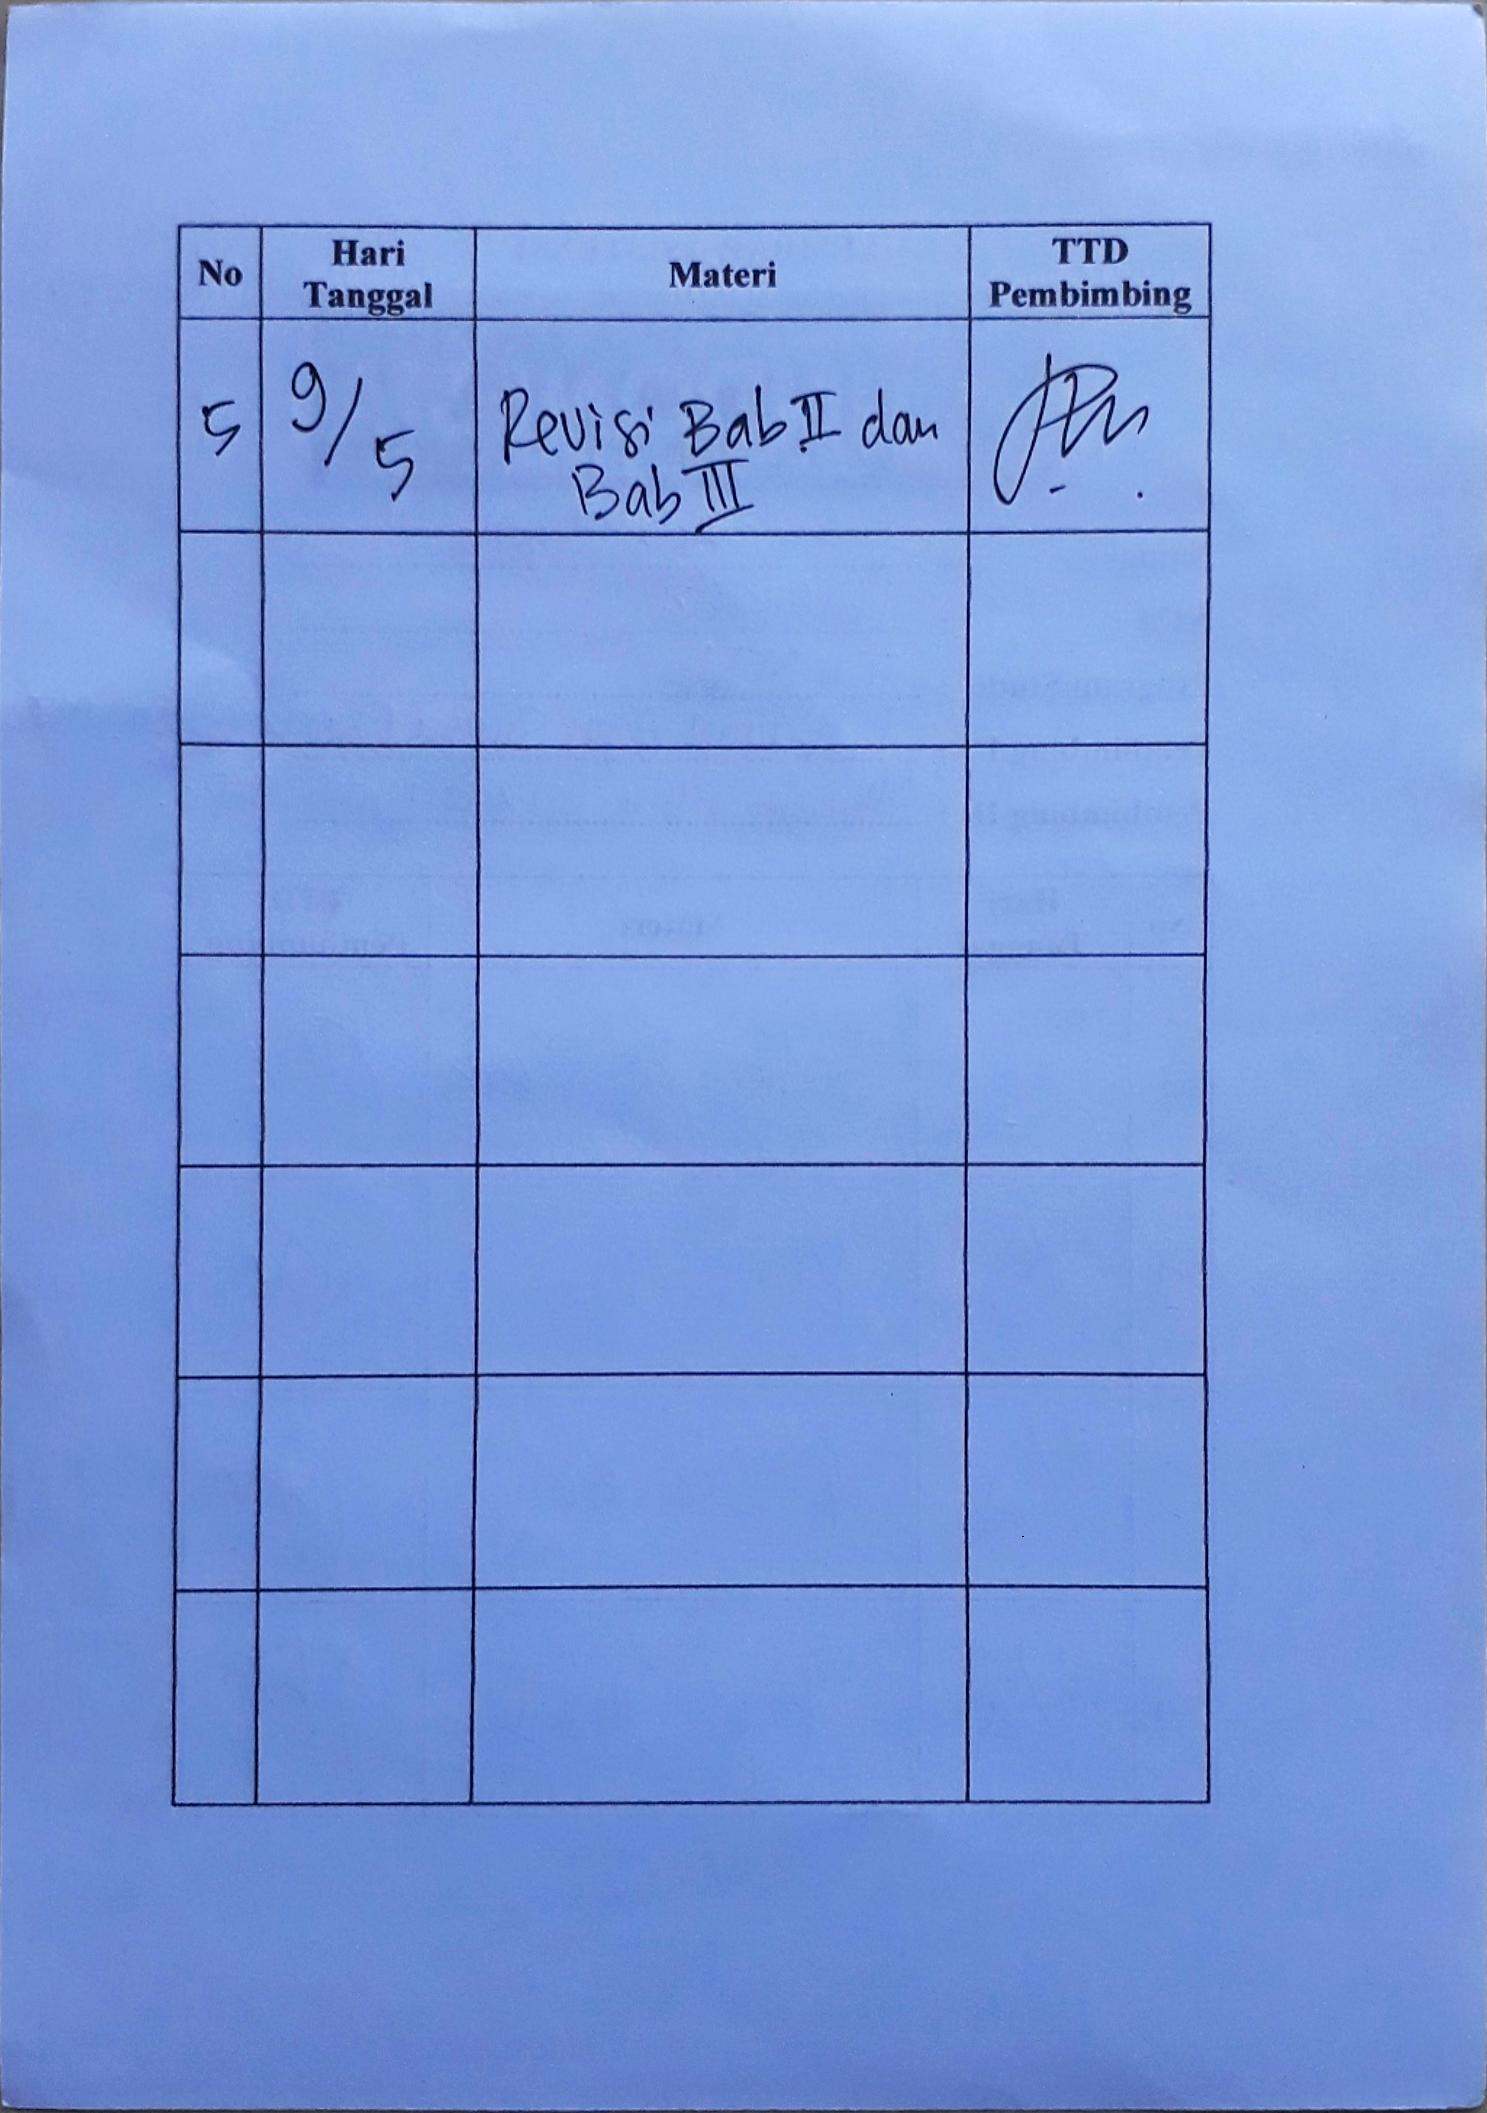 No
Hari
Tanggal
Materi
TTD
Pembimbing
5
9/5
Revisi Bab II dan
Bab III